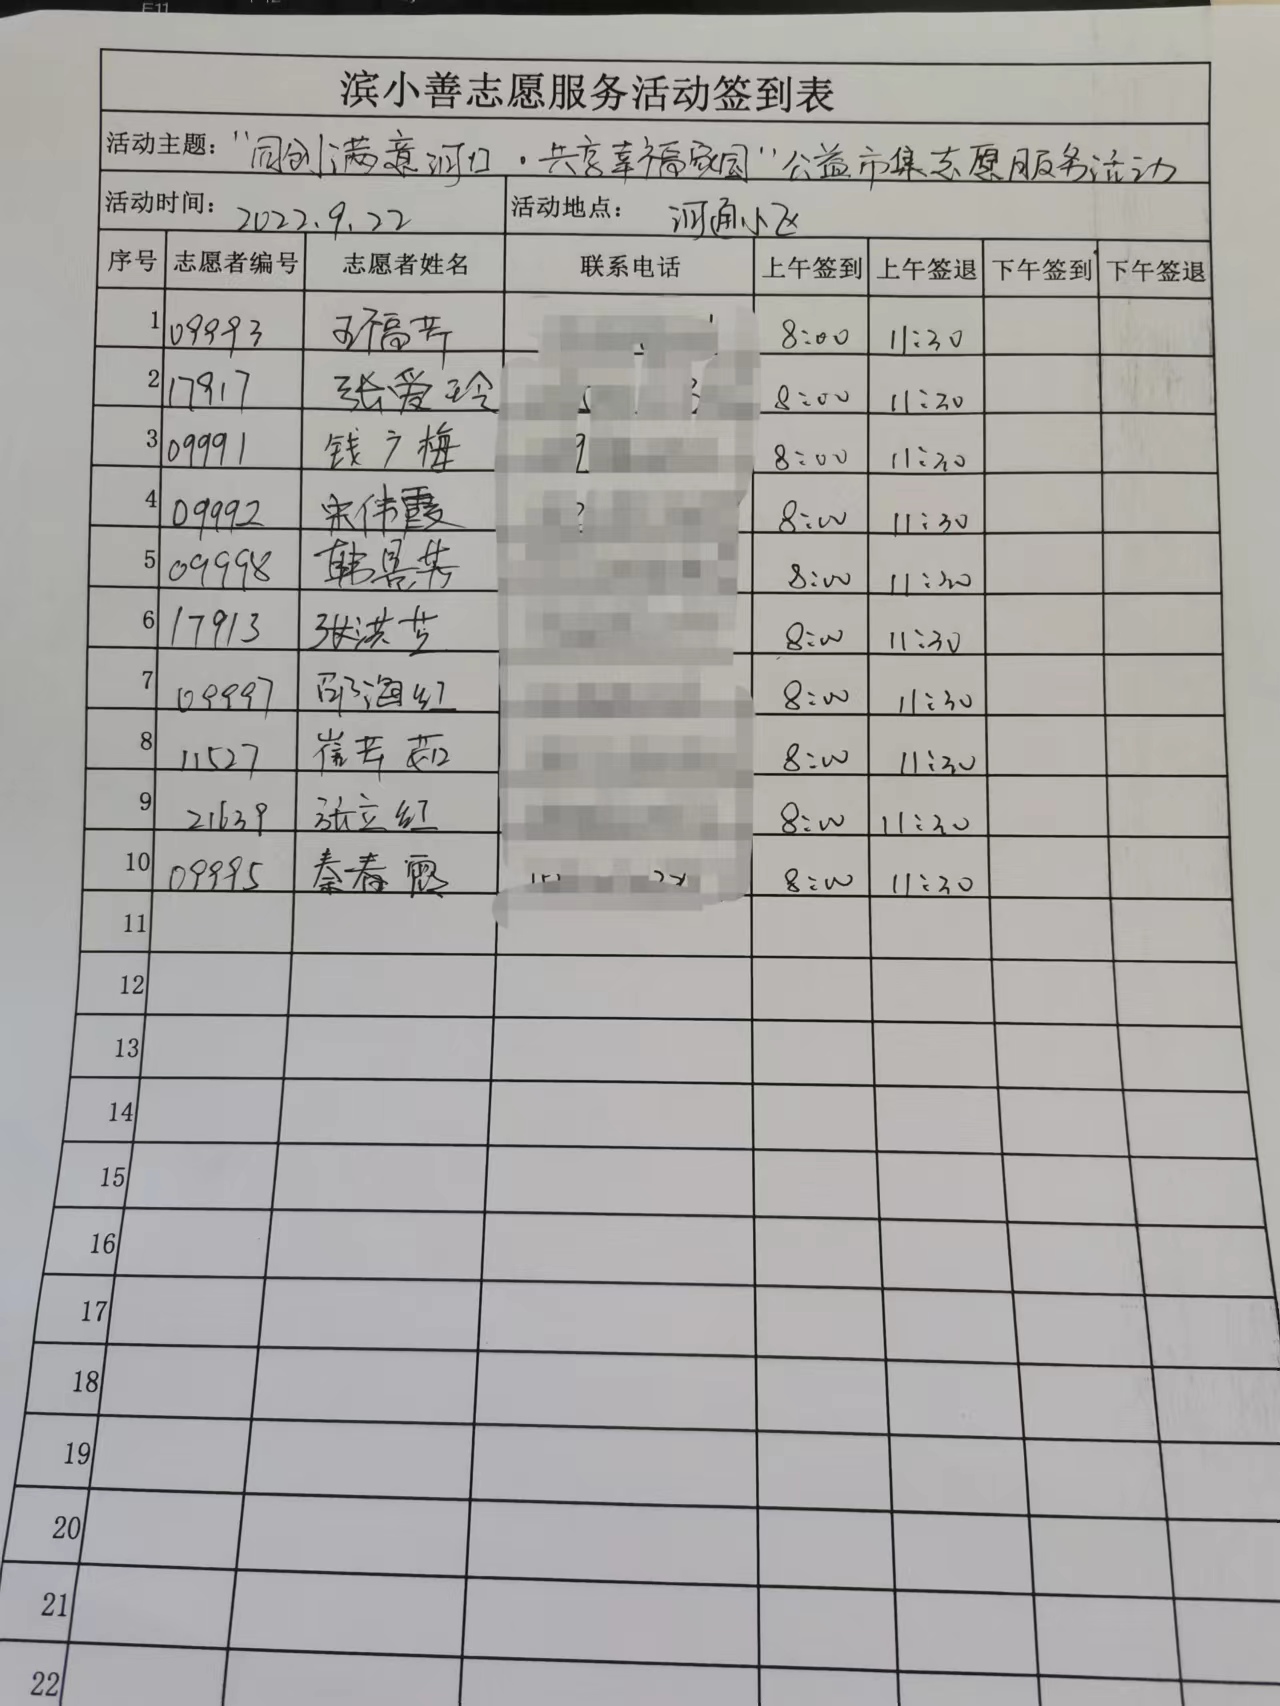 滨小善志愿服务活动签到表
活动主题："同创满意河口·共享幸福家园"公益市集志愿服务活动
活动时间：2022.9.22 活动地点：河通小区
序号 志愿者编号 志愿者姓名 联系电话 上午签到 上午签退 下午签到 下午签退
1 09993 福芹 8:00 11:30
2 17917 张爱玲 8:00 11:30
3 09991 钱广梅 8:00 11:30
4 09992 宋伟霞 8:00 11:30
5 09998 韩景芳 8:00 11:30
6 17913 张洪芝 8:00 11:30
7 09997 邱海红 8:00 11:30
8 11527 崔芹茹 8:00 11:30
9 21639 张立红 8:00 11:30
10 09995 秦春霞 8:00 11:30
11
12
13
14
15
16
17
18
19
20
21
22